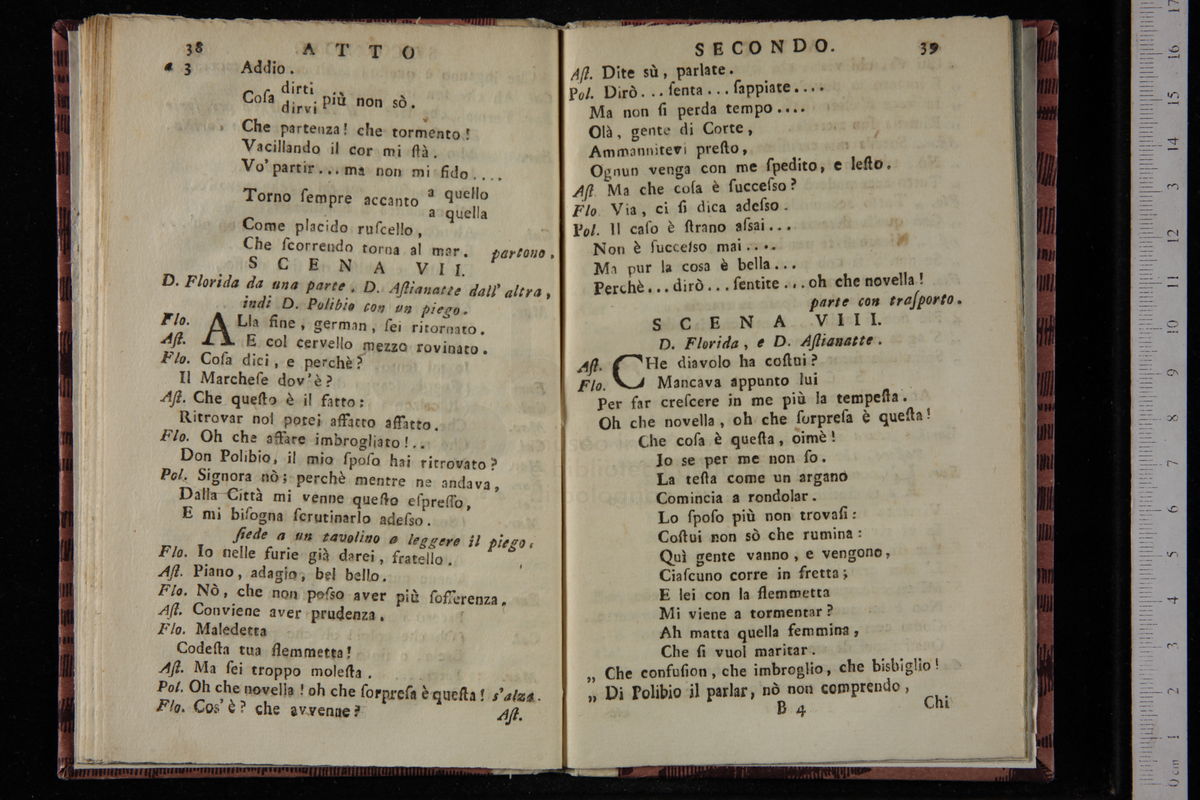 38 ATTO
a 3 Addio.
Coſa dirti
dirvi più non sò.
Che partenza! che tormento!
Vacillando il cor mi ſtà.
Vo' partir... ma non mi fido....
Torno ſempre accanto a quello
a quella
Come placido ruſcello,
Che ſcorrendo torna al mar. partono.
SCENA VII.
D. Florida da una parte. D. Aſtianatte dall' altra,
indi D. Polibio con un piego.
Flo. ALla fine, german, ſei ritornato.
Aſt. E col cervello mezzo rovinato.
Flo. Coſa dici, e perchè?
Il Marcheſe dov'è?
Aſt. Che queſto è il fatto:
Ritrovar nol potei affatto affatto.
Flo. Oh che affare imbrogliato!..
Don Polibio, il mio ſpoſo hai ritrovato?
Pol. Signora nò; perchè mentre ne andava,
Dalla Città mi venne queſto eſpreſſo,
E mi biſogna ſcrutinarlo adeſso.
ſiede a un tavolino a leggere il piego.
Flo. Io nelle furie già darei, fratello.
Aſt. Piano, adagio, bel bello.
Flo. Nò, che non poſso aver più ſofferenza.
Aſt. Conviene aver prudenza.
Flo. Maledetta
Codeſta tua flemmetta!
Aſt. Ma ſei troppo moleſta.
Pol. Oh che novella! oh che ſorpreſa è queſta! s'alza.
Flo. Cos'è? che avvenne?
Aſt.
SECONDO. 39
Aſt. Dite sù, parlate.
Pol. Dirò... ſenta... ſappiate....
Ma non ſi perda tempo....
Olà, gente di Corte,
Ammannitevi preſto,
Ognun venga con me ſpedito, e leſto.
Aſt. Ma che coſa è ſucceſso?
Flo. Via, ci ſi dica adeſso.
Pol. Il caſo è ſtrano aſsai...
Non è ſucceſso mai....
Ma pur la cosa è bella...
Perchè... dirò... ſentite... oh che novella!
parte con traſporto.
SCENA VIII.
D. Florida, e D. Aſtianatte.
Aſt. CHe diavolo ha coſtui?
Flo. Mancava appunto lui
Per far creſcere in me più la tempeſta.
Oh che novella, oh che ſorpreſa è queſta!
Che coſa è queſta, oimè!
Io se per me non ſo.
La teſta come un argano
Comincia a rondolar.
Lo ſpoſo più non trovaſi:
Coſtui non sò che rumina:
Quì gente vanno, e vengono,
Ciaſcuno corre in fretta;
E lei con la flemmetta
Mi viene a tormentar?
Ah matta quella femmina,
Che ſi vuol maritar.
„ Che confuſion, che imbroglio, che bisbiglio!
„ Di Polibio il parlar, nò non comprendo,
B 4 Chi